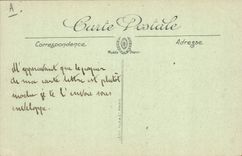 A.
Carte Postale
Correspondance
Adresse
M'apercevant que le papier
de ma carte lettre est plutôt
moche je te l'envoie sous
enveloppe.